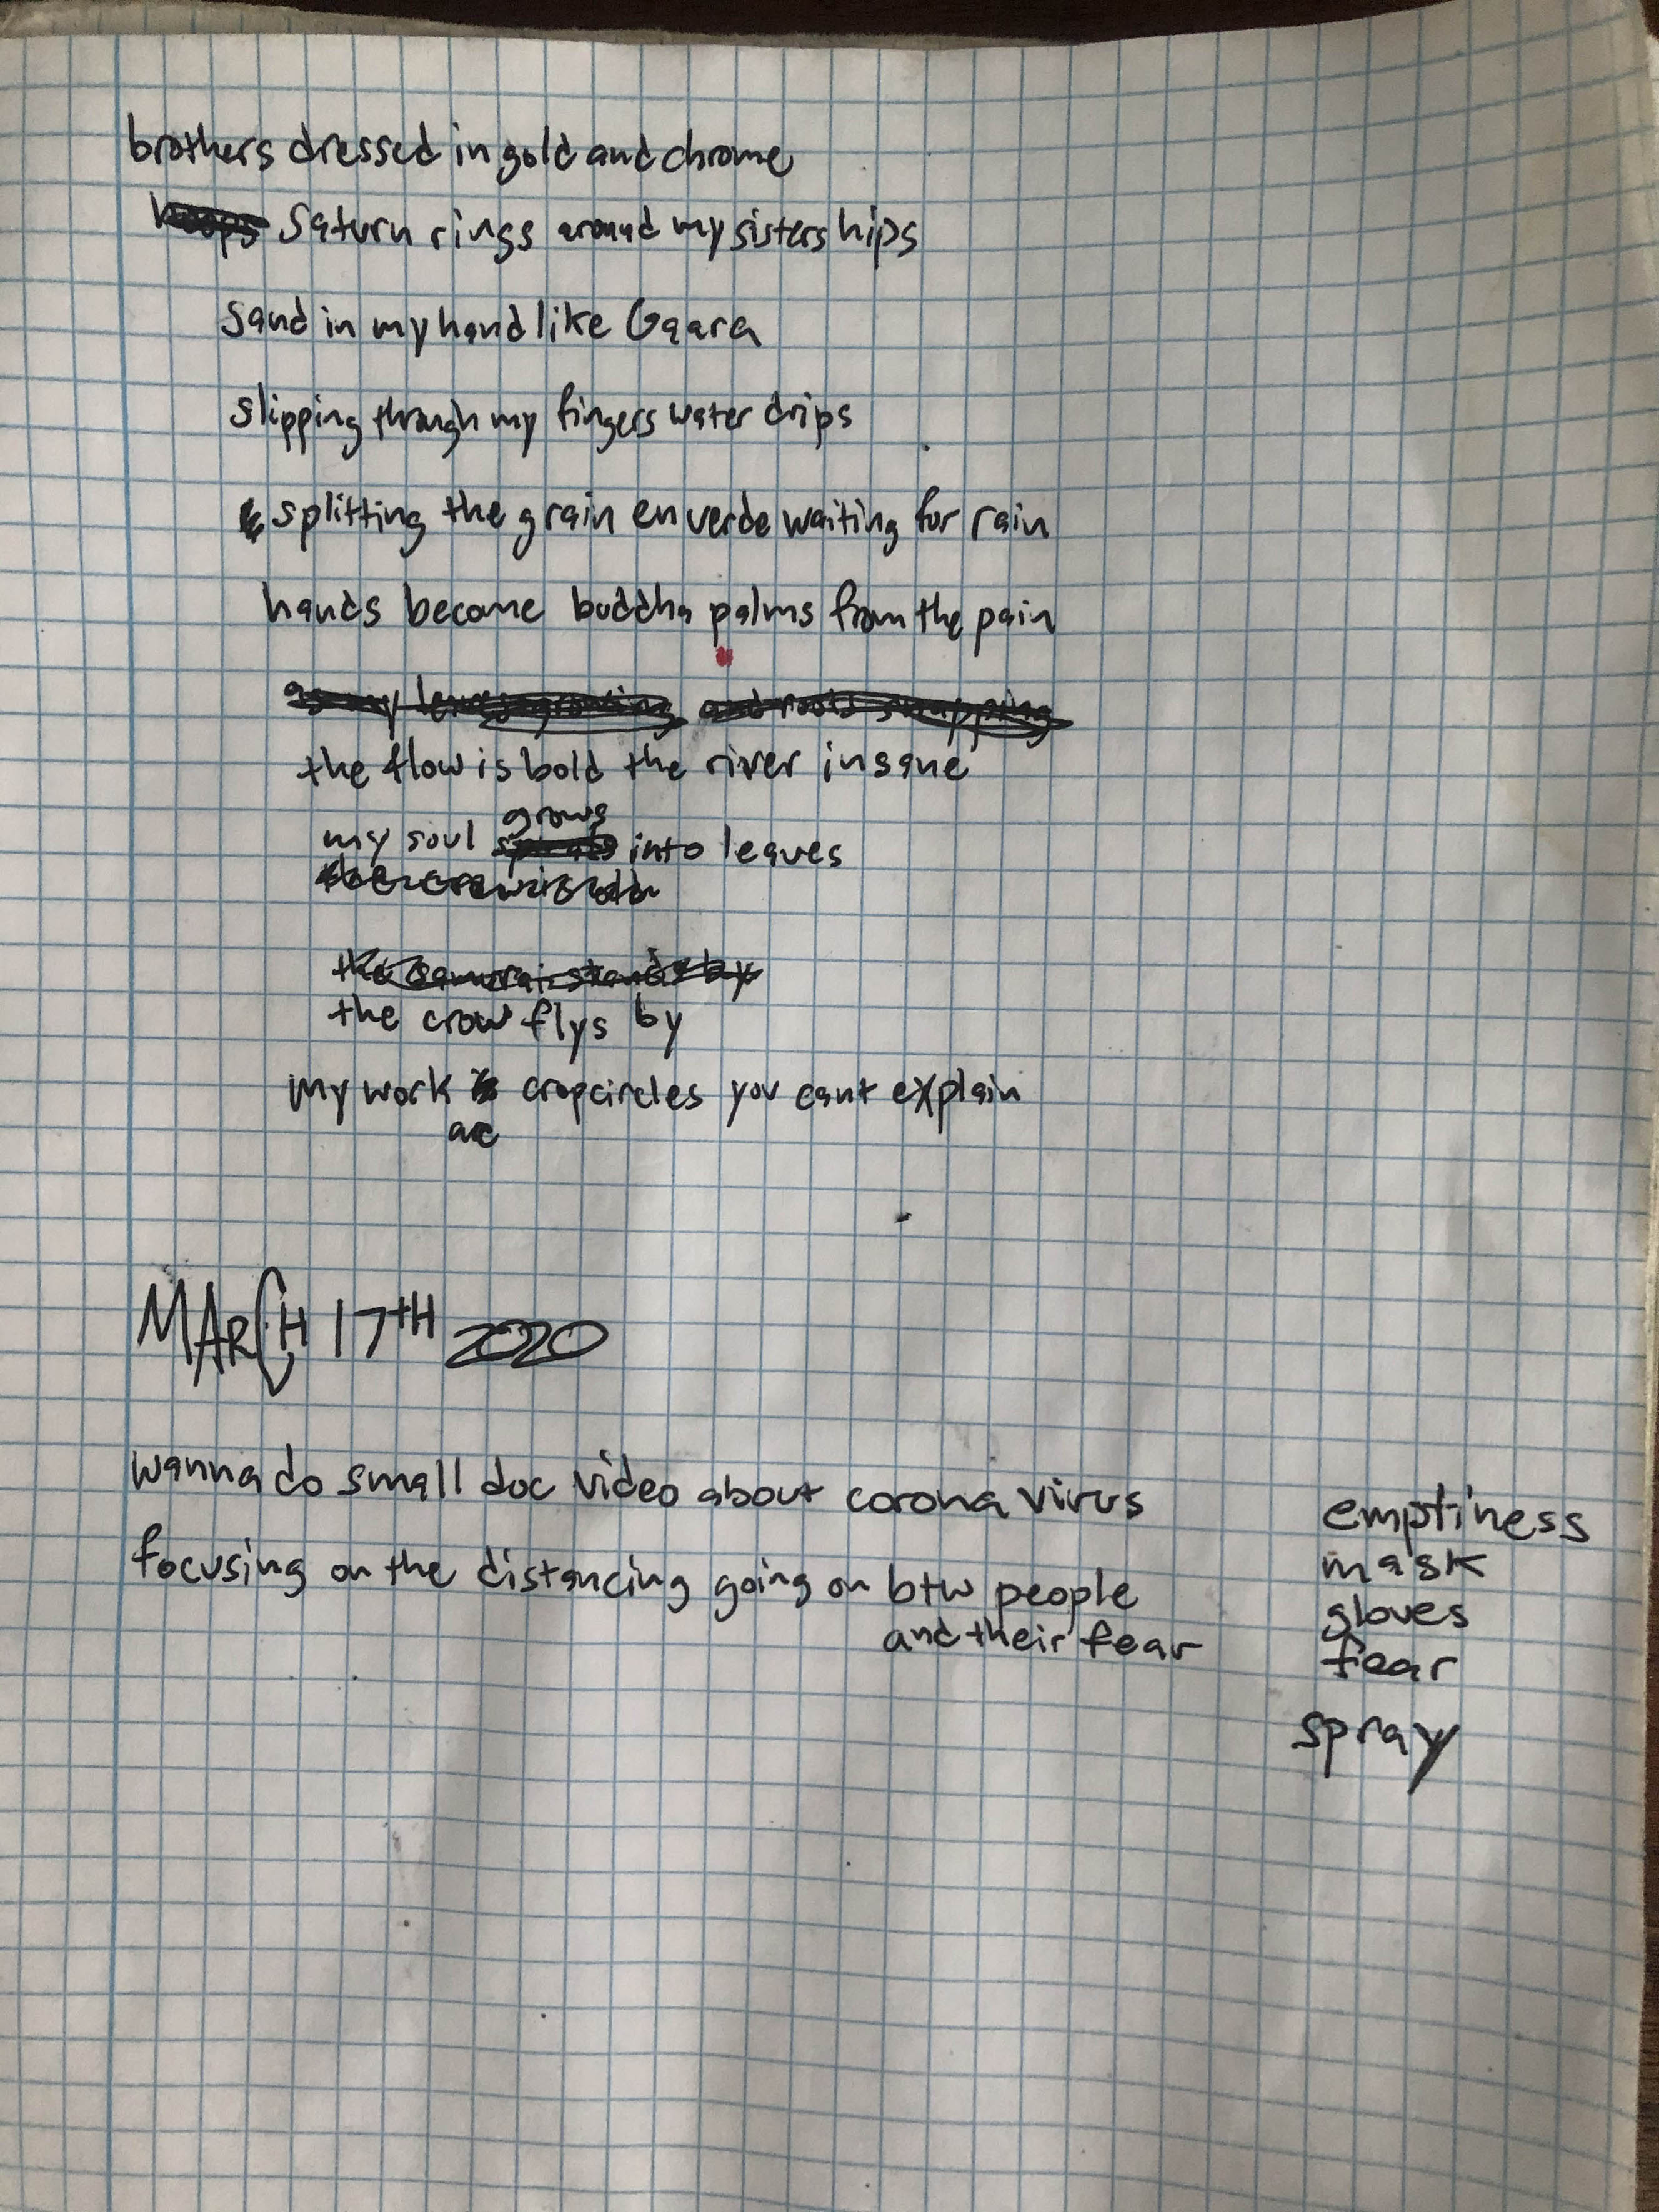 brothers dressed in gold and chrome
hoops Saturn rings around my sisters hips
sand in my hand like Gaara
slipping through my fingers water drips
splitting the grain en verde waiting for rain
hands become buddha palms from the pain
as my leaves growing and roots swapping
the flow is bold the river insane
grows
my soul into leaves
the samurai stands by
the crow flys by
my work is cropcircles you cant explain
are
MARCH 17TH 2020
wanna do small doc video about corona virus
focusing on the distancing going on btw people
and their fear
emptiness
mask
gloves
fear
spray